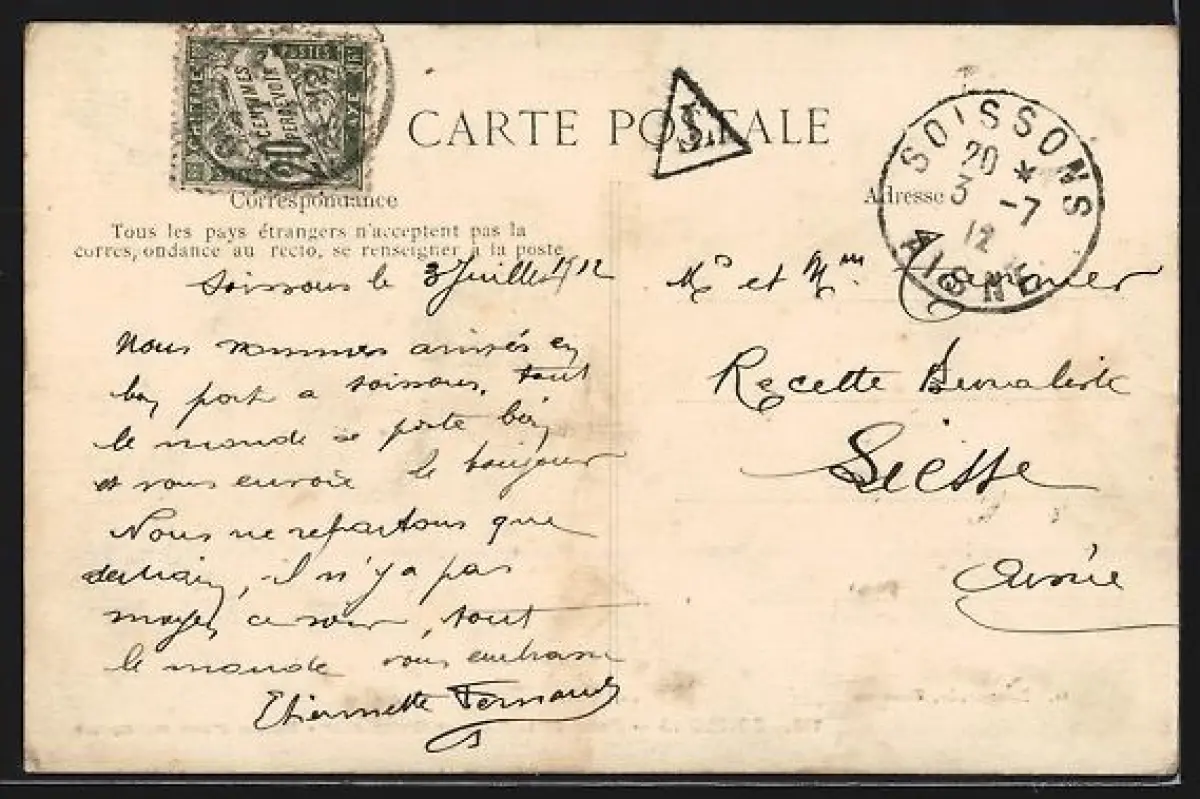 CHIFFRE
POSTES
20 CENTIMES
PERCEVOIR
CARTE POSTALE
T
SOISSONS
20 *
3 -7
12
AISNE
Correspondance
Adresse
Tous les pays étrangers n'acceptent pas la
correspondance au recto, se renseigner à la poste
Soissons le 3 Juillet 1912
Nous sommes arrivés en
bon port a soissons, tout
le monde se porte bien
et vous envoie le bonjour
Nous ne repartons que
demain, il n'y a pas
moyen ce soir, tout
le monde vous embrasse
Etiennette Fernand
Mr et Mme
Recette Buraliste
Liesse
Aisne